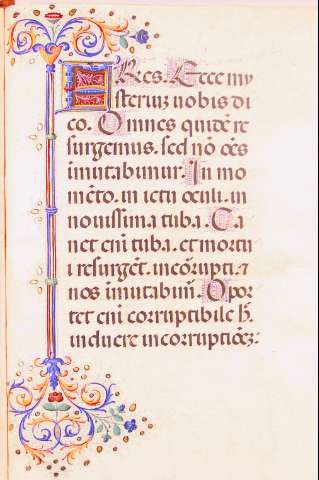 FRes. Ecce my
steriuz nobis di
co. Omnes quidē re
surgemus. sed nō oēs
immutabimur. In mo
mēto. in ictu oculi. in
novissima tuba. Ca
net enī tuba. et mortu
i resurgēt. incorrupti. ⁊
nos immutabim̄. Opor
tet enī corruptibile h̄.
induere incorruptiōez.